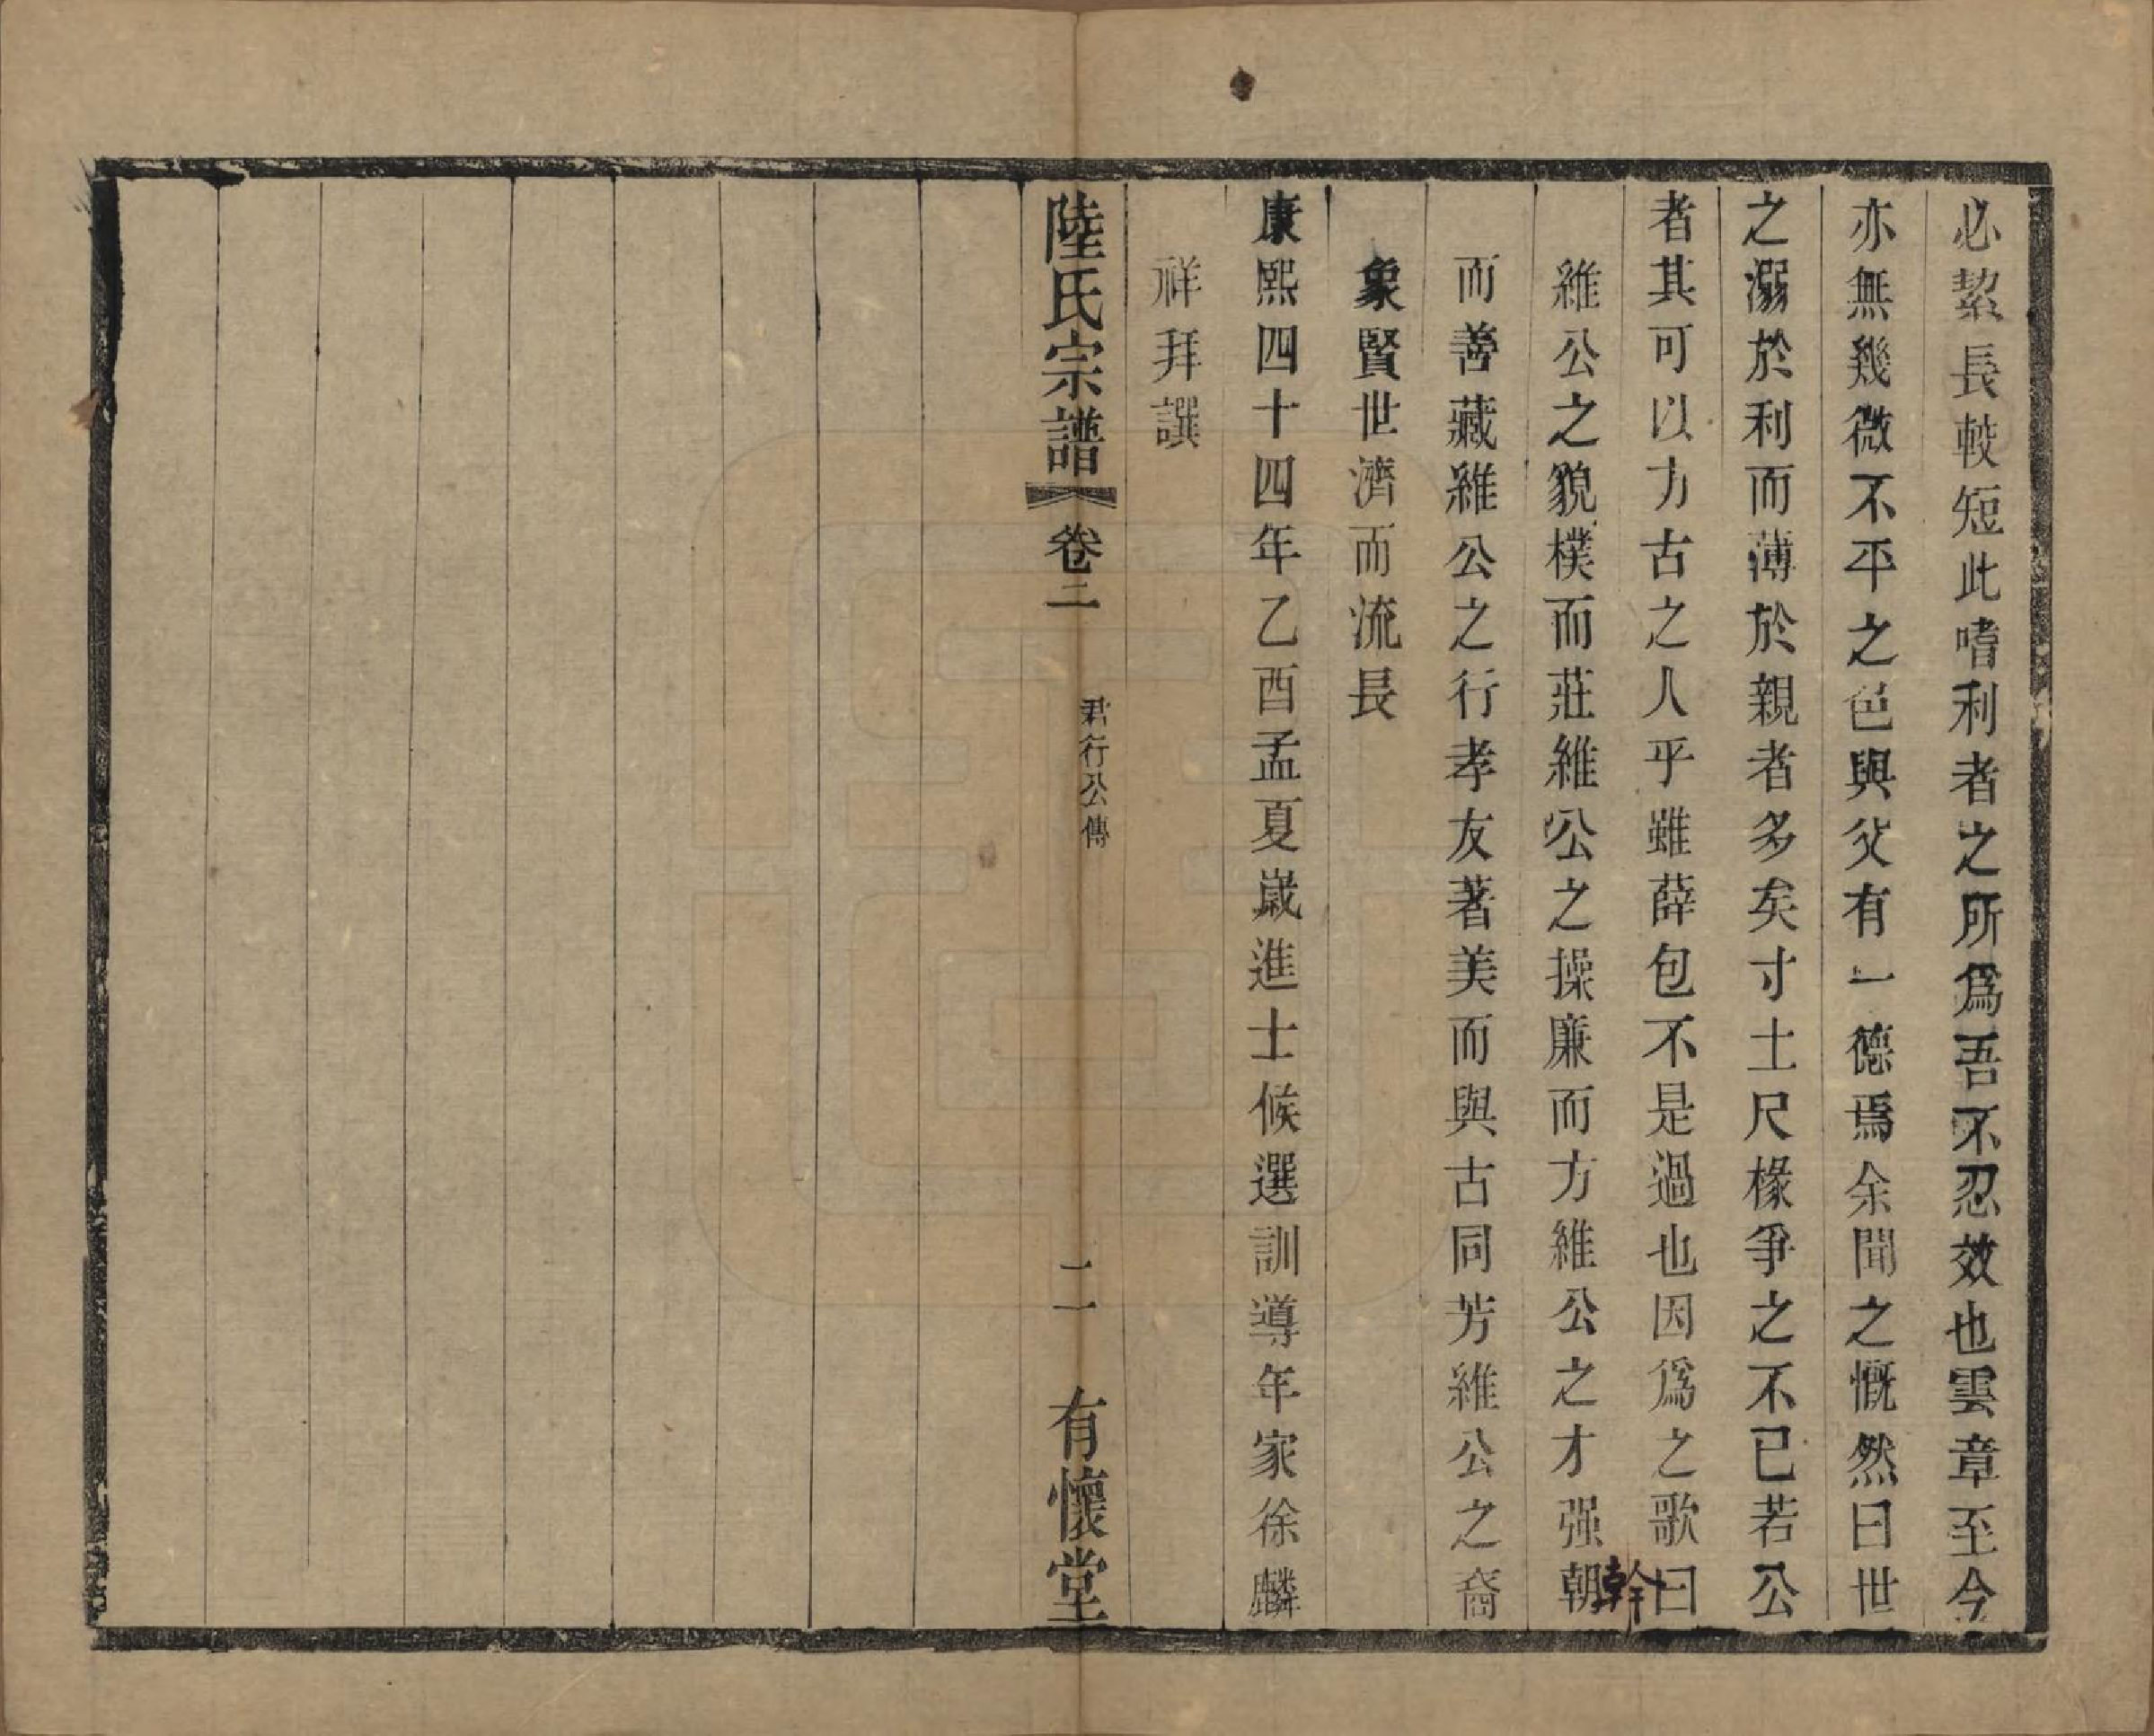 必絜長較短此嗜利者之所爲吾不忍效也雲章至今
亦無幾微不平之色與父有一德焉余聞之慨然曰世
之溺於利而薄於親者多矣寸土尺椽爭之不已若公
者其可以力古之人乎雖薛包不是過也因爲之歌曰
維公之貌樸而莊維公之操廉而方維公之才强朝
幹
而善藏維公之行孝友著美而與古同芳維公之裔
象賢世濟而流長
康熙四十四年乙酉孟夏嵗進士候選訓導年家徐麟
祥拜譔
陸氏宗譜 卷二 君行公傳 二 有懷堂